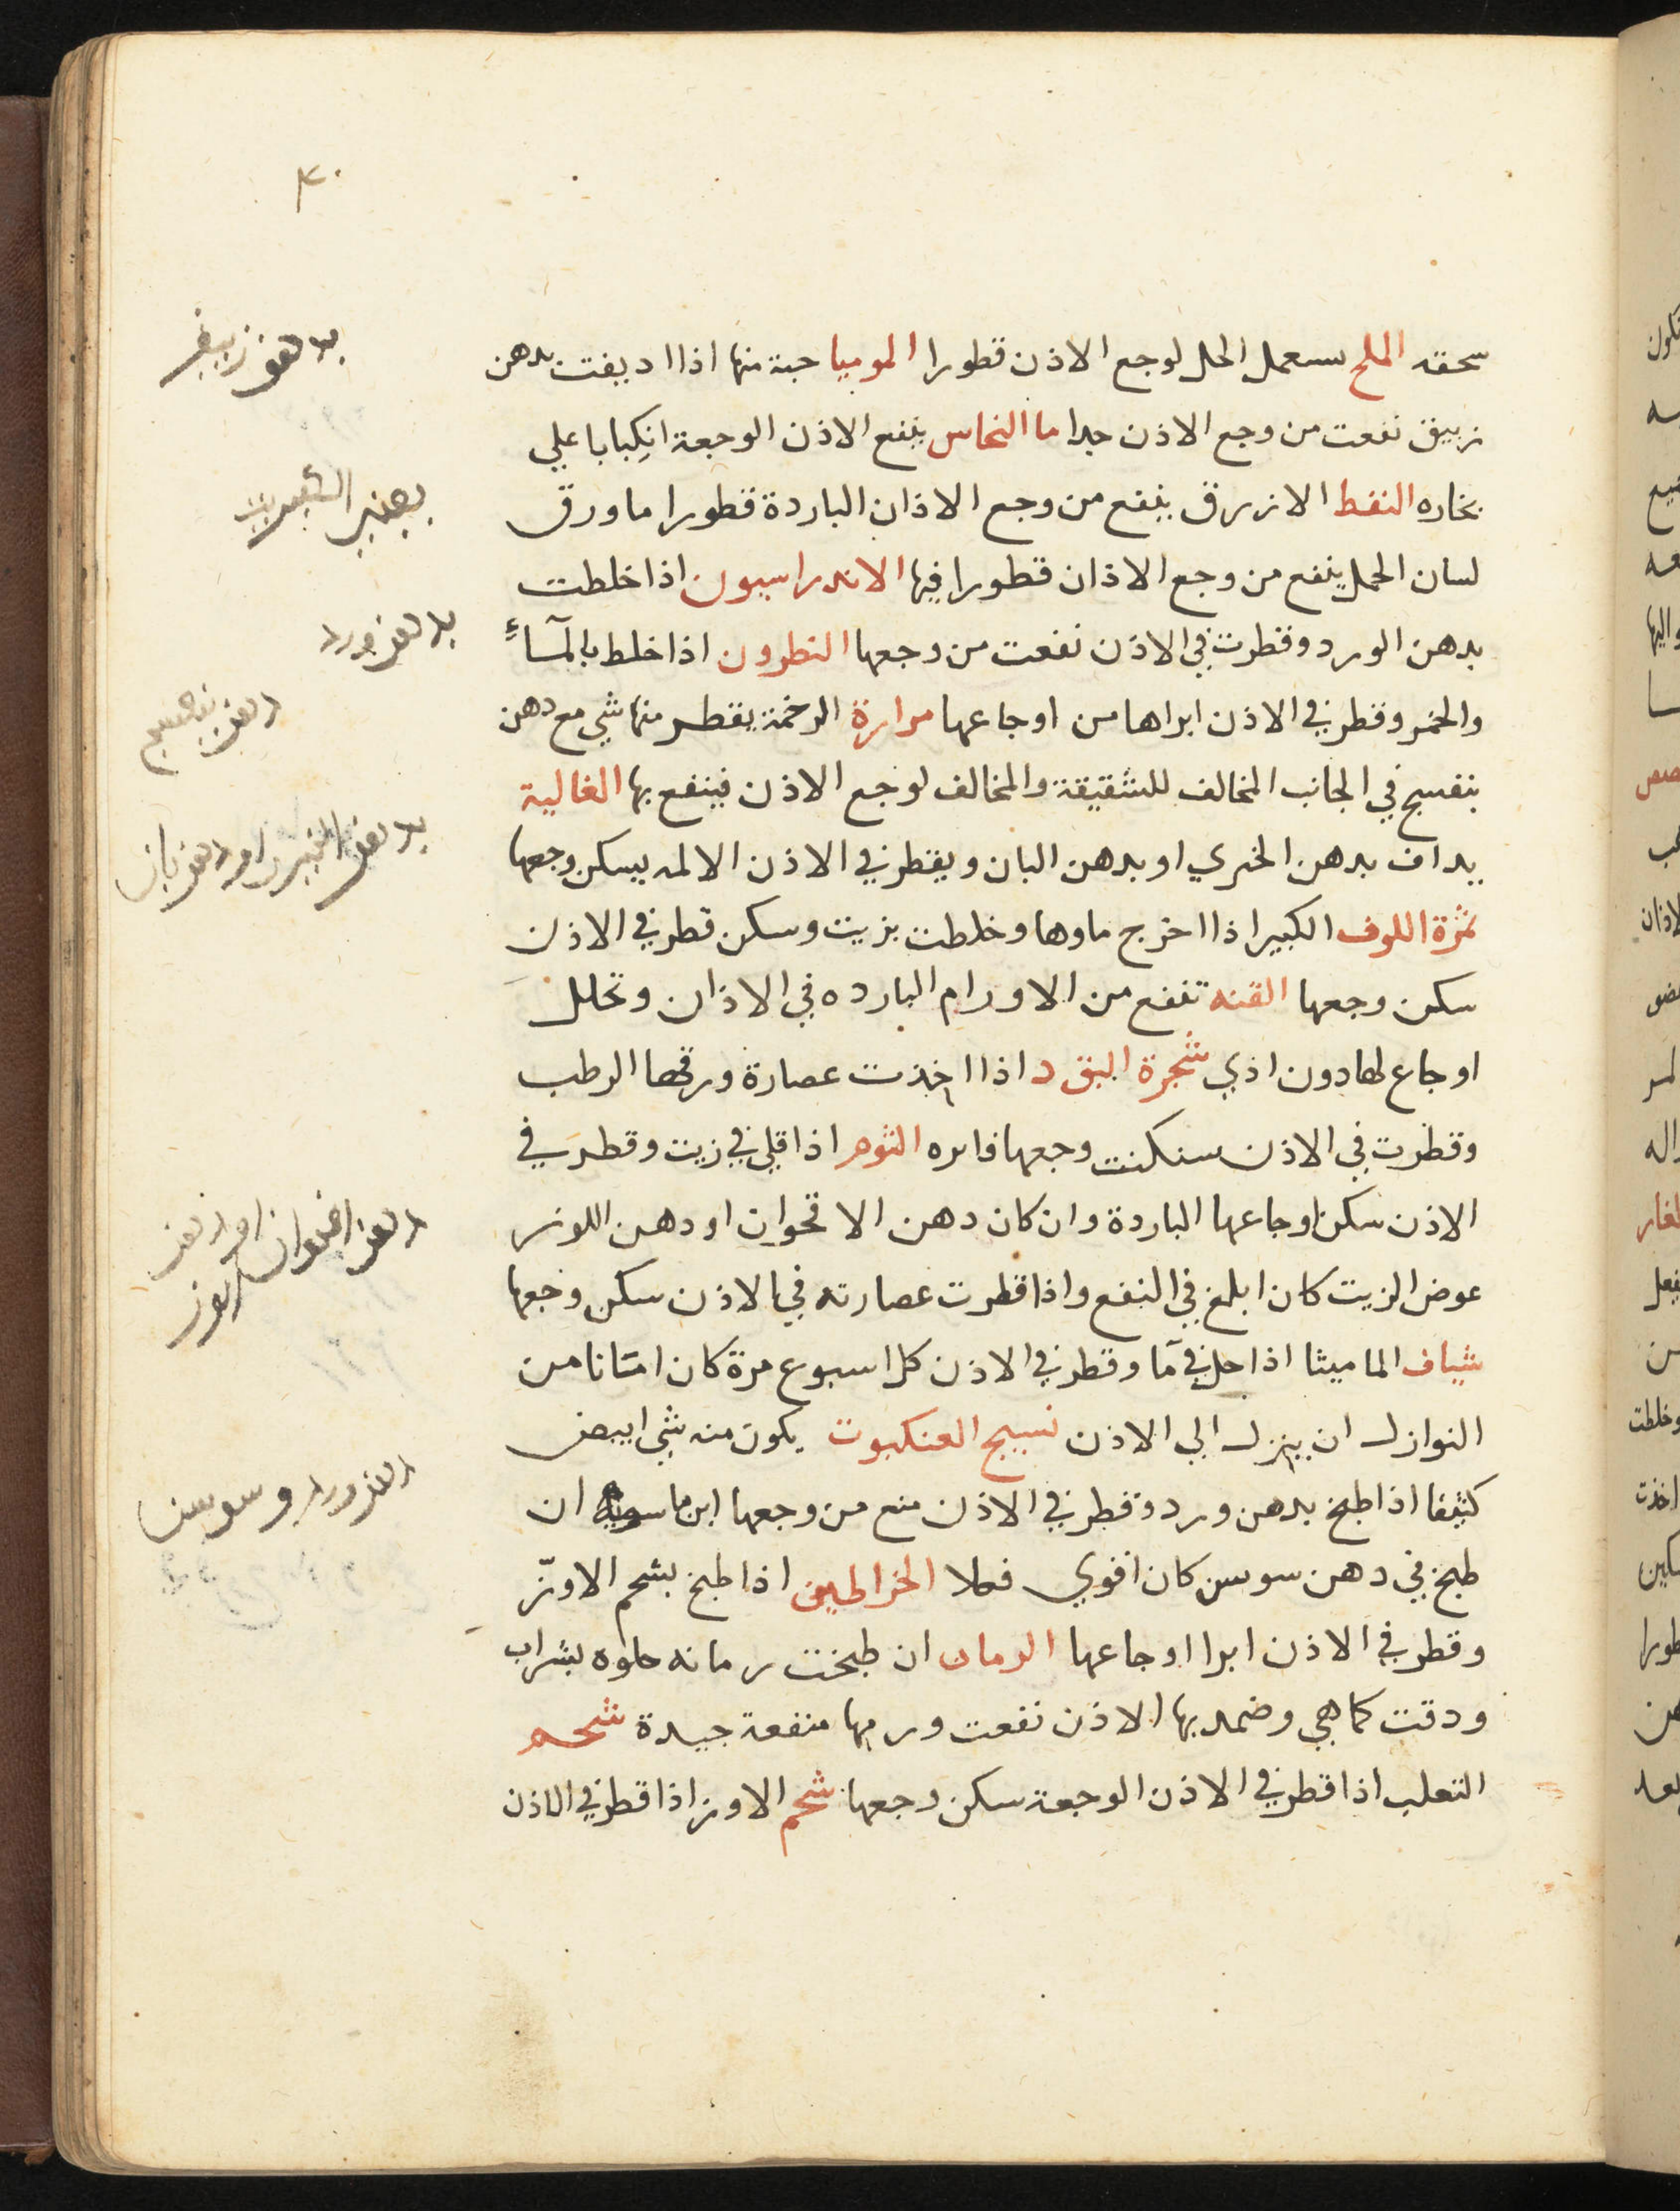 ٤٠
سحقه الملح يستعمل الحل لوجع الاذن قطورا الموميا حبة منها اذا اديفت بدهن
زبيق نفعت من وجع الاذن جدا ما النحاس ينفع الاذن الوجعة انكبابا علي
بخاره النفط الازرق ينفع من وجع الاذان الباردة قطورا ما ورق
لسان الحمل ينفع من وجع الاذان قطورا فيها الاندراسيون اذا خلطت
بدهن الورد وقطرت في الاذن نفعت من وجعها النطرون اذا خلط بالمآء
والخمر وقطر في الاذن ابراها من اوجاعها مرارة الرخمة يقطر منها شي مع دهن
بنفسج في الجانب المخالف للشقيقة والمخالف لوجع الاذن فينفع بها الغالية
يداف بدهن الخيري او بدهن البان ويقطر في الاذن الالمه يسكن وجعها
ثمرة اللوف الكبير اذا اخرج ماوها وخلطت بزيت وسكن قطر في الاذن
سكن وجعها القنه تنفع من الاورام البارده في الاذان وتحلل
اوجاع لها دون اذي شجرة البق د اذا اخذت عصارة ورقها الرطب
وقطرت في الاذن سنكنت وجعها فاتره الثوم اذا قلي في زيت وقطر في
الاذن سكن اوجاعها الباردة وان كان دهن الاقحوان او دهن اللوز
عوض الزيت كان ابلغ في النفع واذا قطرت عصارته في الاذن سكن وجعها
شياف الماميثا اذا حل في مآ وقطر في الاذن كل اسبوع مرة كان امتانا من
النوازل ان ينزل الي الاذن نسيج العنكبوت يكون منه شي ابيض
كثيفا اذا طبخ بدهن ورد وقطر في الاذن منع من وجعها ابن ماسويه ان
طبخ في دهن سوسن كان اقوي فعلا الخراطين اذا طبخ بشحم الاوزّ
وقطر في الاذن ابرا اوجاعها الرمان ان طبخت رمانه حلوه بشراب
ودقت كما هي وضمد بها الاذن نفعت ورمها منفعة جيدة شحم
الثعلب اذا قطر في الاذن الوجعة سكن وجعها شحم الاوز اذا قطر في الاذن
بدهن زيبق
بدهن ورد
دهن بنفسج
دهن اقحوان او دهن
لوز
دهن ورد و سوسن